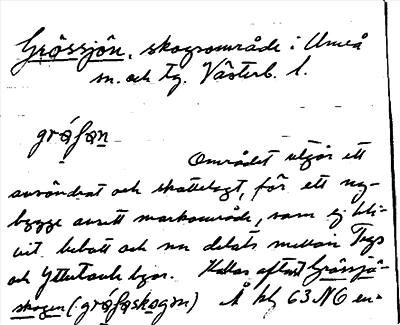 Gråssjön, skogsområde i Umeå
sn. och tg. Västerb. l.
gråfan
Området utgör ett
avvändrat och skattelagt, för ett ny-
bygge avsett markområde, som ej bli-
vit bebott och nu delats mellan Tegs
och Ytterteule byar. Kallas oftast Gråssjö-
skogen (gråfaskogan) Å bl 63 N6 en-